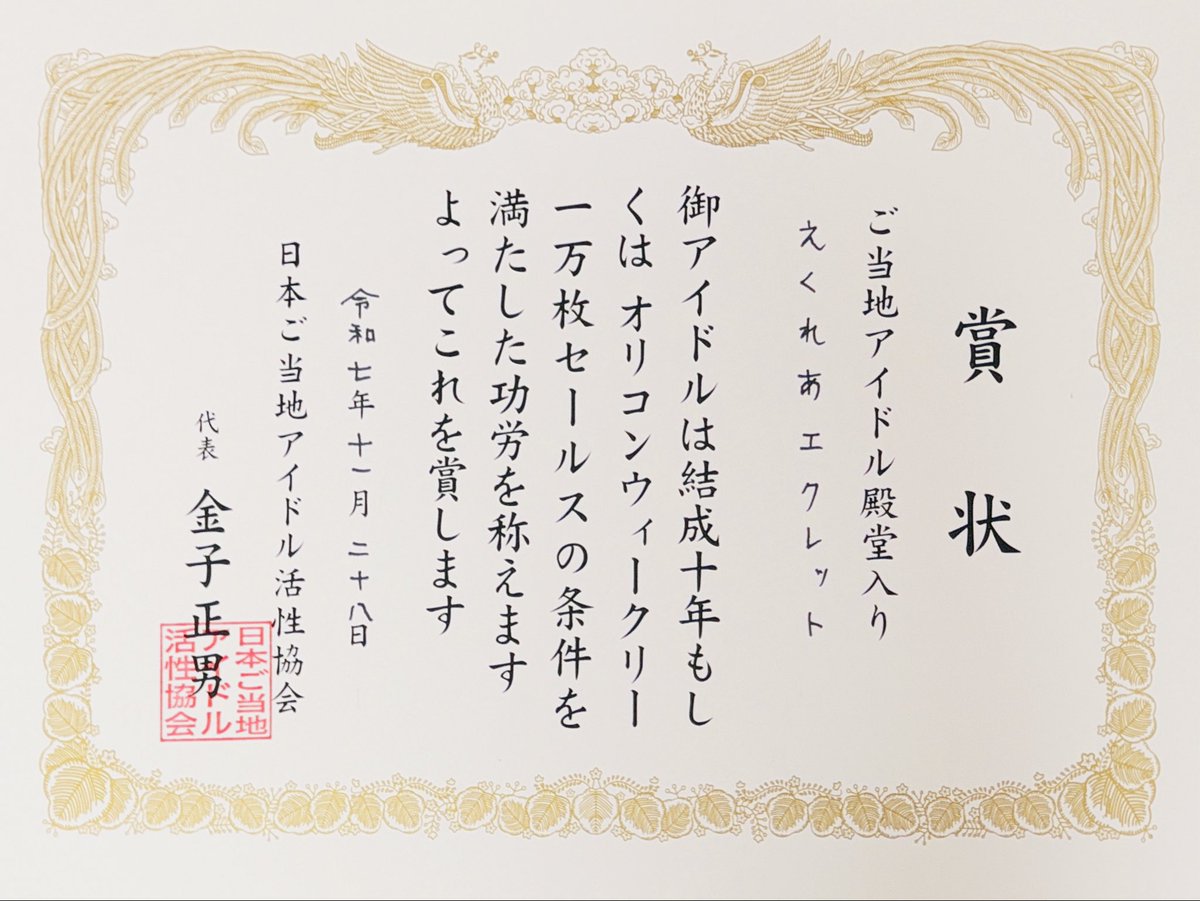 賞状
ご当地アイドル殿堂入り
えくれあエクレット
御アイドルは結成十年もし
くは オリコンウィークリー
一万枚セールスの条件を
満たした功労を称えます
よってこれを賞します
令和七年十一月二十八日
日本ご当地アイドル活性協会
代表 金子正男
日本ご当地
アイドル
活性協会